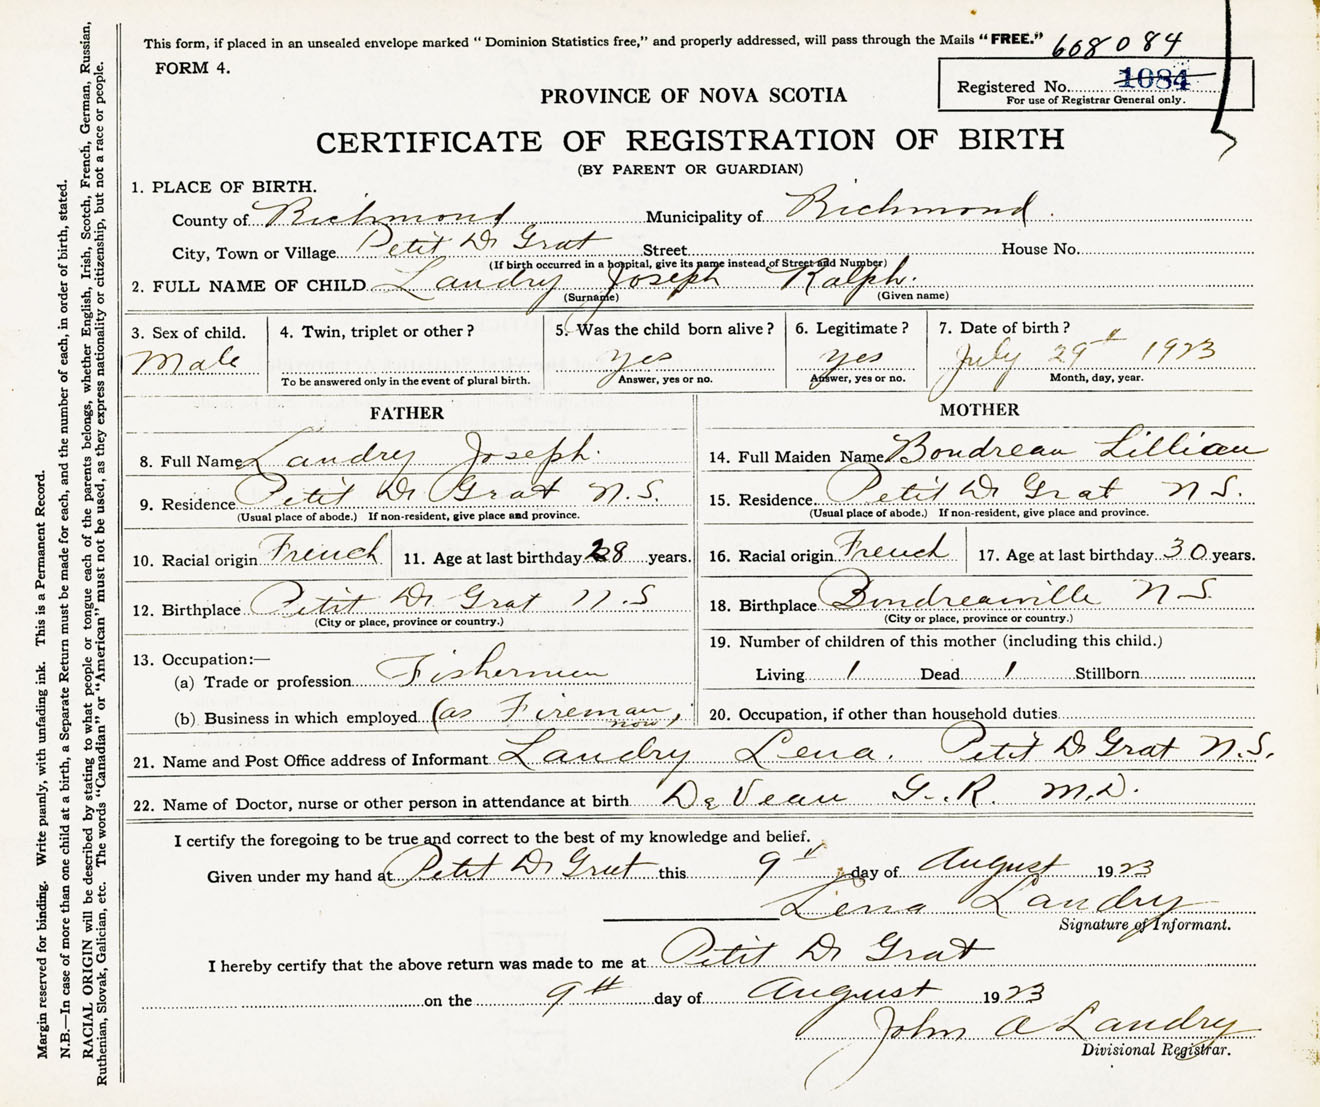 This form, if placed in an unsealed envelope marked "Dominion Statistics free," and properly addressed, will pass through the Mails "FREE."
608084
FORM 4.
Registered No. 1084
For use of Registrar General only.
PROVINCE OF NOVA SCOTIA
CERTIFICATE OF REGISTRATION OF BIRTH
(BY PARENT OR GUARDIAN)
1. PLACE OF BIRTH.
County of Richmond Municipality of Richmond.
City, Town or Village Petit De Grat Street House No.
(If birth occurred in a hospital, give its name instead of Street and Number)
2. FULL NAME OF CHILD Landry Joseph Ralph.
(Surname) (Given name)
3. Sex of child. 4. Twin, triplet or other? 5. Was the child born alive? 6. Legitimate? 7. Date of birth?
Male yes yes July 29th 1923
To be answered only in the event of plural birth. Answer, yes or no. Answer, yes or no. Month, day, year.
FATHER MOTHER
8. Full Name Landry Joseph. 14. Full Maiden Name Boudreau Lillian
9. Residence Petit De Grat N.S. 15. Residence Petit De Grat N S.
(Usual place of abode.) If non-resident, give place and province. (Usual place of abode.) If non-resident, give place and province.
10. Racial origin French 11. Age at last birthday 28 years. 16. Racial origin French 17. Age at last birthday 30 years.
12. Birthplace Petit De Grat N.S 18. Birthplace Boudreauville N S.
(City or place, province or country.) (City or place, province or country.)
13. Occupation:— 19. Number of children of this mother (including this child.)
(a) Trade or profession Fisherman Living 1 Dead 1 Stillborn
(b) Business in which employed (as Fireman now) 20. Occupation, if other than household duties
21. Name and Post Office address of Informant Landry Lena. Petit De Grat N.S.
22. Name of Doctor, nurse or other person in attendance at birth DeVeau G.R. M.D.
I certify the foregoing to be true and correct to the best of my knowledge and belief.
Given under my hand at Petit De Grat this 9th day of August 1923
Lena Landry
Signature of Informant.
I hereby certify that the above return was made to me at Petit De Grat
on the 9th day of August 1923
John A Landry
Divisional Registrar.
Margin reserved for binding. Write plainly, with unfading ink. This is a Permanent Record.
N.B.—In case of more than one child at a birth, a Separate Return must be made for each, and the number of each, in order of birth, stated.
RACIAL ORIGIN will be described by stating to what people or tongue each of the parents belongs, whether English, Irish, Scotch, French, German, Russian,
Ruthenian, Slovak, Galician, etc. The words "Canadian" or "American" must not be used, as they express nationality or citizenship, but not a race or people.